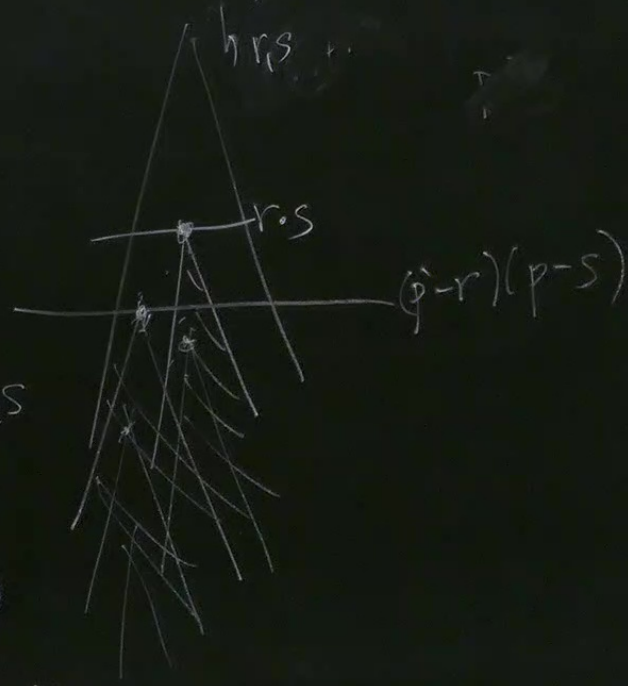 h r,s
r·s
(p-r)(p-s)
s